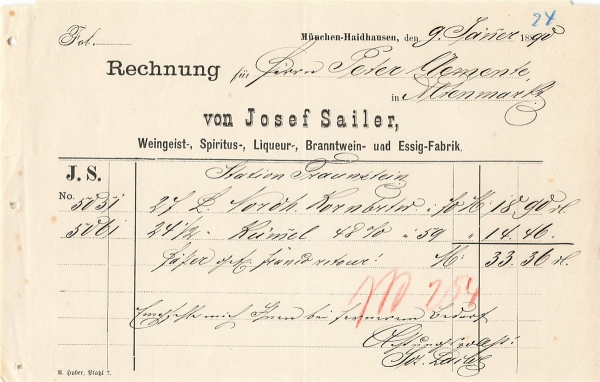 24
Fol.
München-Haidhausen, den 9. Jäner 1890
Rechnung für Herrn Peter Clemente,
in Altenmarkt.
von Josef Sailer,
Weingeist-, Spiritus-, Liqueur-, Branntwein- und Essig-Fabrik.
J. S.
No.
Station Traunstein
5051 27 L. Nordh. Kornbrtw. à 70 M. 18.90
5061 24½ " Kümel 48% à 59 " 14.46.
Fäßer franco retour! M: 33.36
M 284
Empfehle mich Ihnen bei fernerem Bedarf
Achtungsvollst!
Jos. Sailer
A. Huber, Platzl 7.